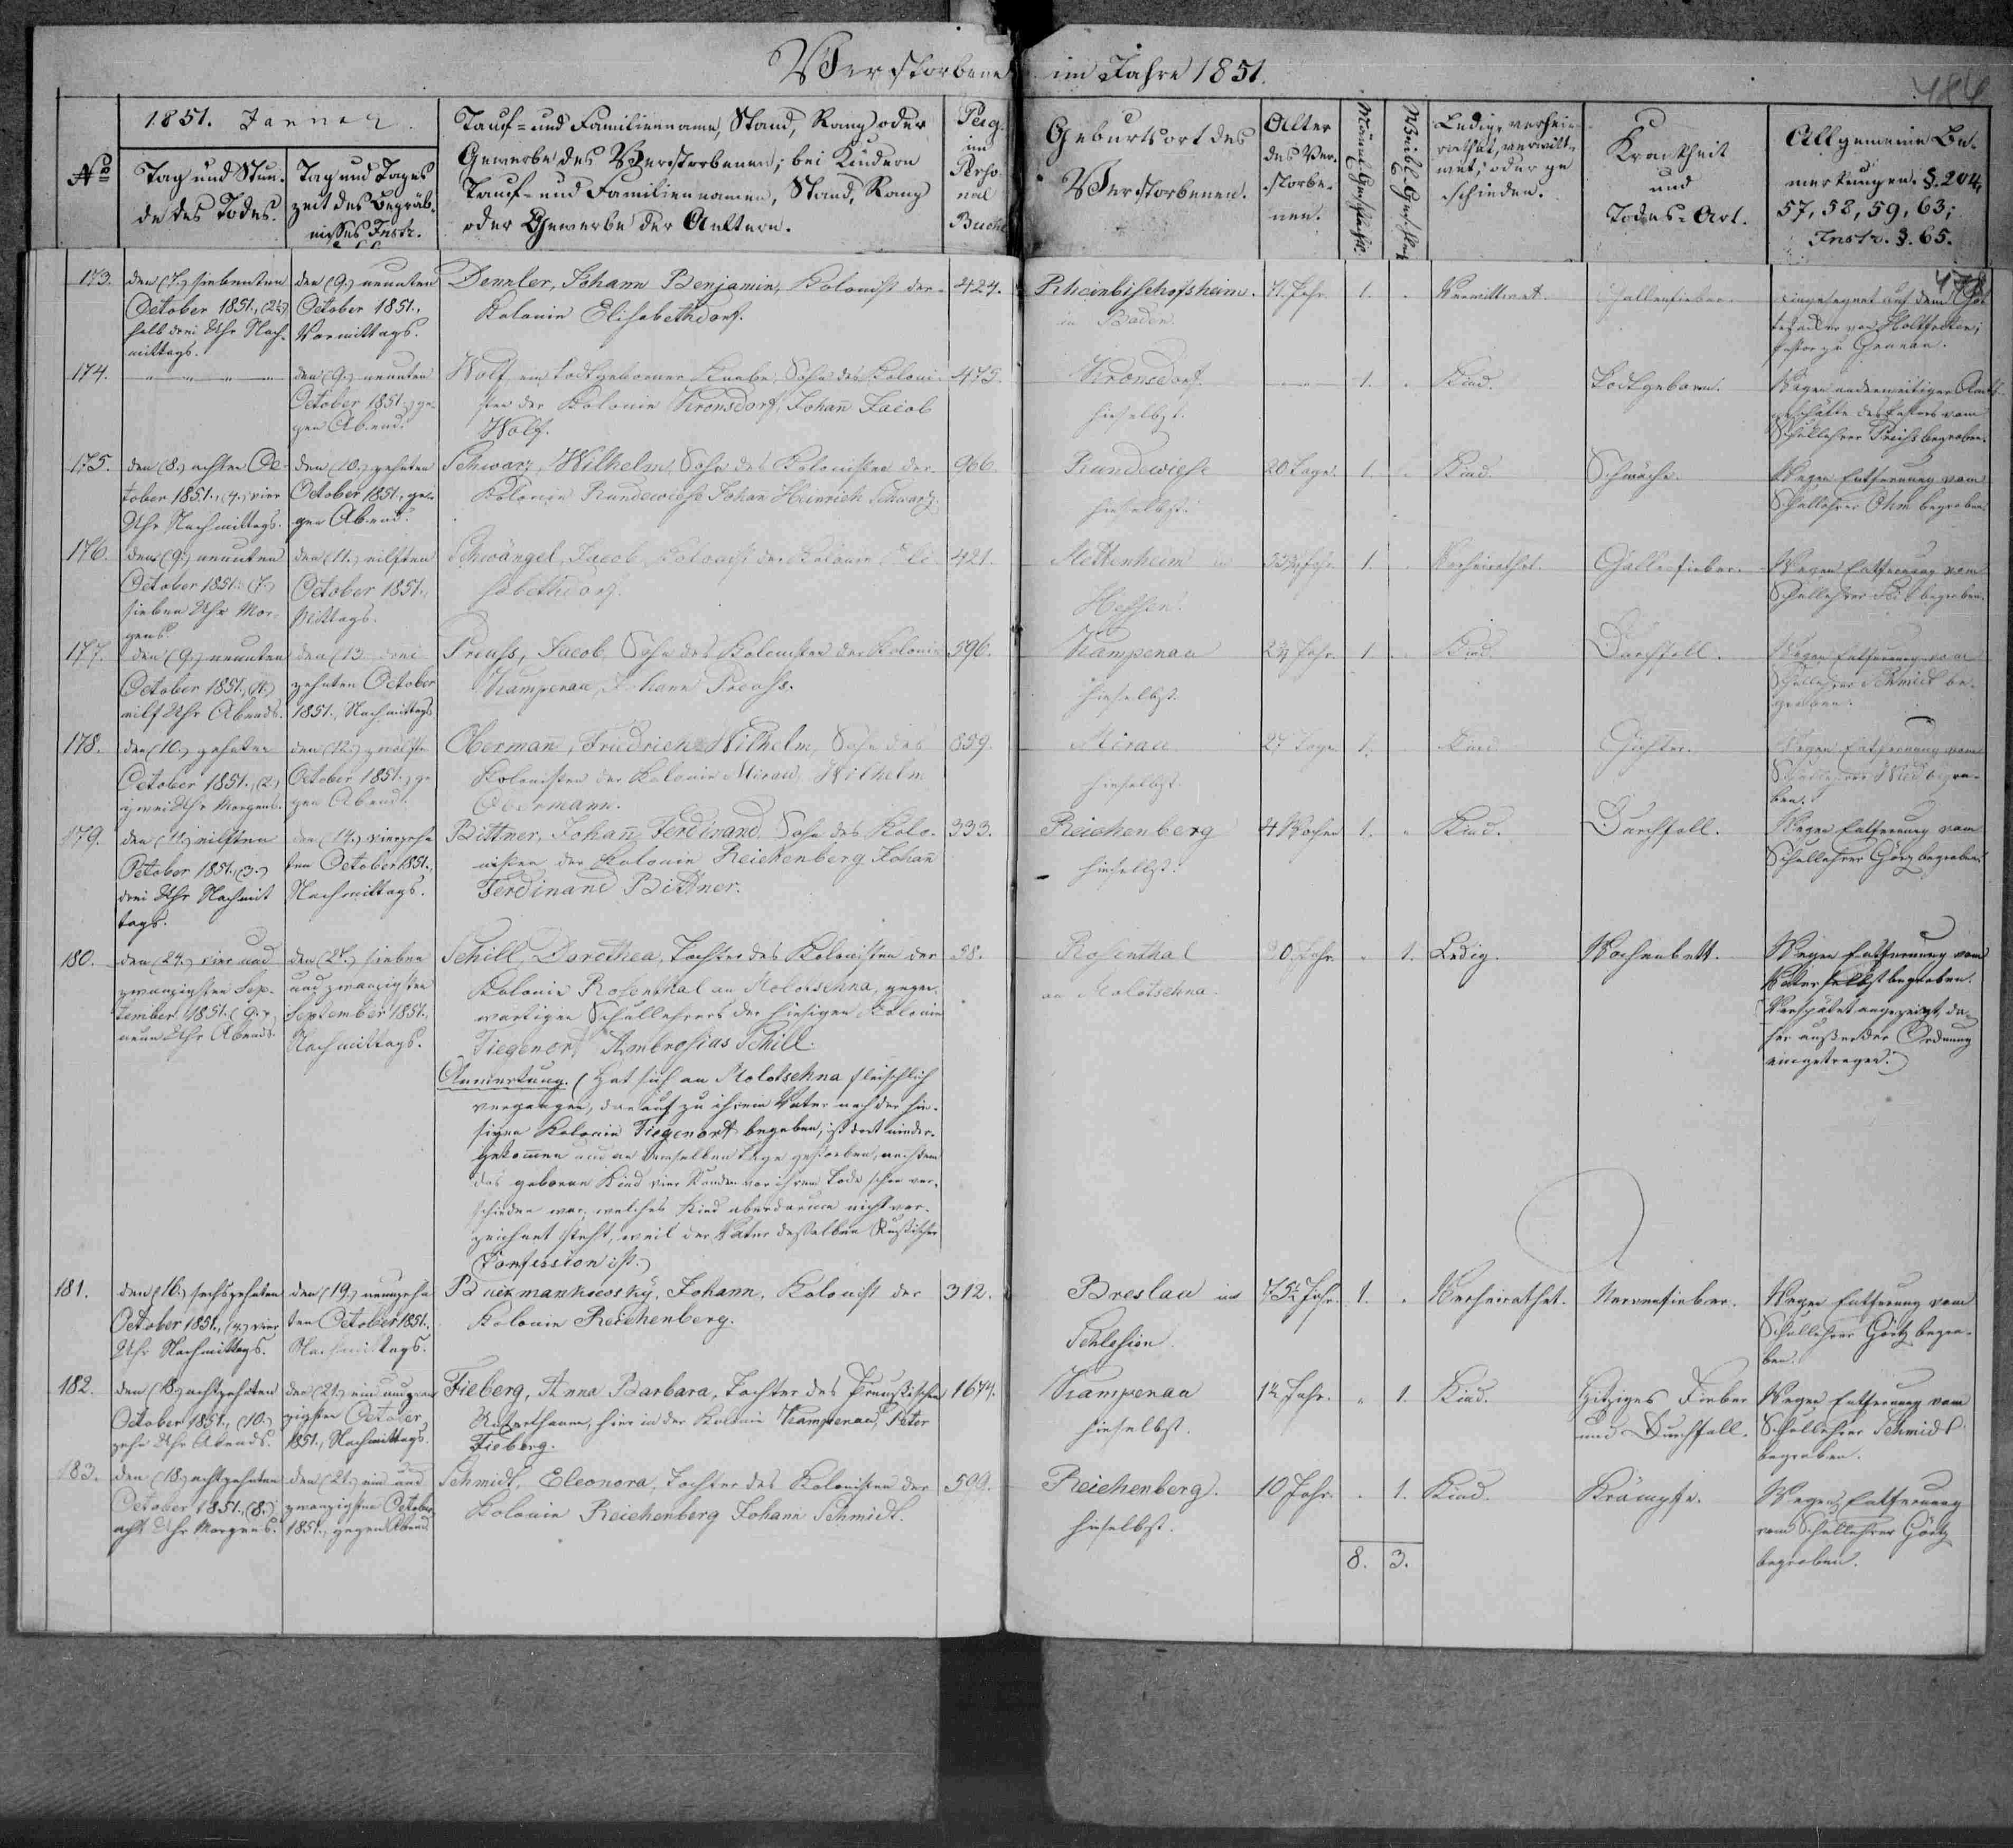 Verstorbene im Jahre 1851.
484
1851. Janner.
No
Tag und Stun-
de des Todes.
Tag und Tages
zeit des Begräb-
nisses Instr.
Tauf- und Familienname, Stand, Rang oder
Gewerbe des Verstorbenen; bei Kindern
Tauf- und Familiennamen, Stand, Rang
oder Gewerbe der Aeltern.
Pag.
im
Perso
nal
Buche
Geburtsort des
Verstorbenen.
Alter
des Ver-
storbe-
nen.
Männl. Geschlecht.
Weibl. Geschlecht
Ledig, verhei-
rathet, verwitt-
wet, oder ge
schieden.
Krankheit
und
Todes-Art.
Allgemeine Be-
merkungen. §. 204,
57, 58, 59, 63;
Instr. §. 65.
173.
den (7.) siebenten
October 1851., (2½)
halb drei Uhr Nach-
mittags.
den (9.) neunten
October 1851.,
Vormittags.
Dennler, Johann Benjamin, Kolonist der
Kolonie Elisabethdorf.
424.
Rheinbischofsheim.
in Baden.
71. Jahr.
1.
Verwittwet.
Gallenfieber.
eingesegnet auf dem Got
tesacker von
Pastor zu Grunau.
174.
den (9.) neunten
October 1851., ge-
gen Abend.
Wolf, ein todtgeborner Knabe, Sohn des Koloni-
sten der Kolonie Kronsdorf, Johann Jacob
Wolf.
475.
Kronsdorf.
hieselbst.
1.
Kind.
Todtgeboren.
Wegen anderweitiger Amts-
geschäfte des Pastors vom
Schullehrer begraben.
175.
den (8.) achten Oc-
tober 1851., (4.) vier
Uhr Nachmittags.
den (10.) zehnten
October 1851., ge-
gen Abend.
Schwarz, Wilhelm, Sohn des Kolonisten der
Kolonie Rundewiese Johan Heinrich Schwarz.
966.
Rundewiese
hieselbst.
20 Tage.
1.
Kind.
Schwäche.
Wegen Entfernung vom
Schullehrer Ohm begraben.
176.
den (9.) neunten
October 1851. (7.)
sieben Uhr Mor-
gens.
den (11.) eilften
October 1851.,
Mittags.
Schwängel, Jacob, Kolonist der Kolonie Eli-
sabethdorf.
421.
Mettenheim in
Hessen.
1.
Verheirathet.
Gallenfieber.
Wegen Entfernung vom
Schullehrer begraben.
177.
den (9.) neunten
October 1851., (11.)
eilf Uhr Abends.
den (13. drei-
zehnten October
1851., Nachmittags
Preuss, Jacob, Sohn des Kolonisten der Kolonie
Kampenau, Johann Preuss.
596.
Kampenau
hieselbst.
1.
Kind.
Durchfall.
Wegen Entfernung vom
Schullehrer Schmidt be-
graben.
178.
den (10.) zehnten
October 1851., (2.)
zwei Uhr Morgens.
den (12.) zwölften
October 1851., ge-
gen Abend.
Obermann, Friedrich Wilhelm, Sohn des
Kolonisten der Kolonie Mirau, Wilhelm
Obermann.
859.
Mirau
hieselbst.
27 Tage
1.
Kind.
Gichter.
Wegen Entfernung vom
Schullehrer begra-
ben.
179.
den (11.) eilften
October 1851., (3.)
drei Uhr Nachmit
tags.
den (14.) vierzehn
ten October 1851.,
Nachmittags.
Bittner, Johann Ferdinand, Sohn des Kolo-
nisten der Kolonie Reichenberg Johann
Ferdinand Bittner.
333.
Reichenberg
hieselbst.
4 Wochen
1.
Kind.
Durchfall.
Wegen Entfernung vom
Schullehrer Görz begraben.
180.
den (24.) vier und
zwanzigsten Sep-
tember. 1851. (9.)
neun Uhr Abends.
den (27.) sieben
und zwanzigsten
September 1851.,
Nachmittags.
Schill, Dorothea, Tochter des Kolonisten der
Kolonie Rosenthal an Molotschna, gegen-
wärtigen Schullehrers der hiesigen Kolonie
Tiegenort Ambrosius Schill.
Anmerkung. (Hat sich an Molotschna fleischlich
vergangen, darauf zu ihrem Vater nach der hie-
sigen Kolonie Tiegenort begeben, ist dort nieder-
gekommen und an demselben Tage gestorben, nachdem
das geborene Kind vier Stunden vor ihrem Tode schon ver-
schieden war, welches Kind aber darum nicht ver-
zeichnet steht, weil der Vater desselben Russischer
Confession ist.)
58.
Rosenthal
an Molotschna.
20 Jahr.
1.
Ledig.
Wochenbett.
Wegen Entfernung vom
Vater selbst begraben.
Verspätet angezeigt, da-
her außer der Ordnung
eingetragen.)
181.
den (16.) sechszehnten
October 1851., (4.) vier
Uhr Nachmittags.
den (19.) neunzehn
ten October 1851.
Nachmittags.
Johann, Kolonist der
Kolonie Reichenberg.
312.
Breslau in
Schlesien.
75½ Jahr.
1.
Verheirathet.
Nervenfieber.
Wegen Entfernung vom
Schullehrer Görtz begra-
ben.
182.
den (18.) achtzehnten
October 1851., (10.)
zehn Uhr Abends.
den (21.) ein und zwan
zigsten October
1851., Nachmittags.
Fieberg, Anna Barbara, Tochter des Preussischen
Unterthanen, hier in der Kolonie Kampenau, Peter
Fieberg.
1674.
Kampenau
hieselbst.
1½ Jahr.
1.
Kind.
Hitziges Fieber
und Durchfall.
Wegen Entfernung vom
Schullehrer Schmidt
begraben.
183.
den (18.) achtzehnten
October 1851., (8.)
acht Uhr Morgens.
den (21.) ein und
zwanzigsten October
1851., gegen Abend
Schmidt, Eleonora, Tochter des Kolonisten der
Kolonie Reichenberg Johann Schmidt.
599.
Reichenberg.
hieselbst.
10 Jahr.
1.
Kind.
Krämpfe.
Wegen Entfernung
vom Schullehrer Görtz
begraben.
8.
3.